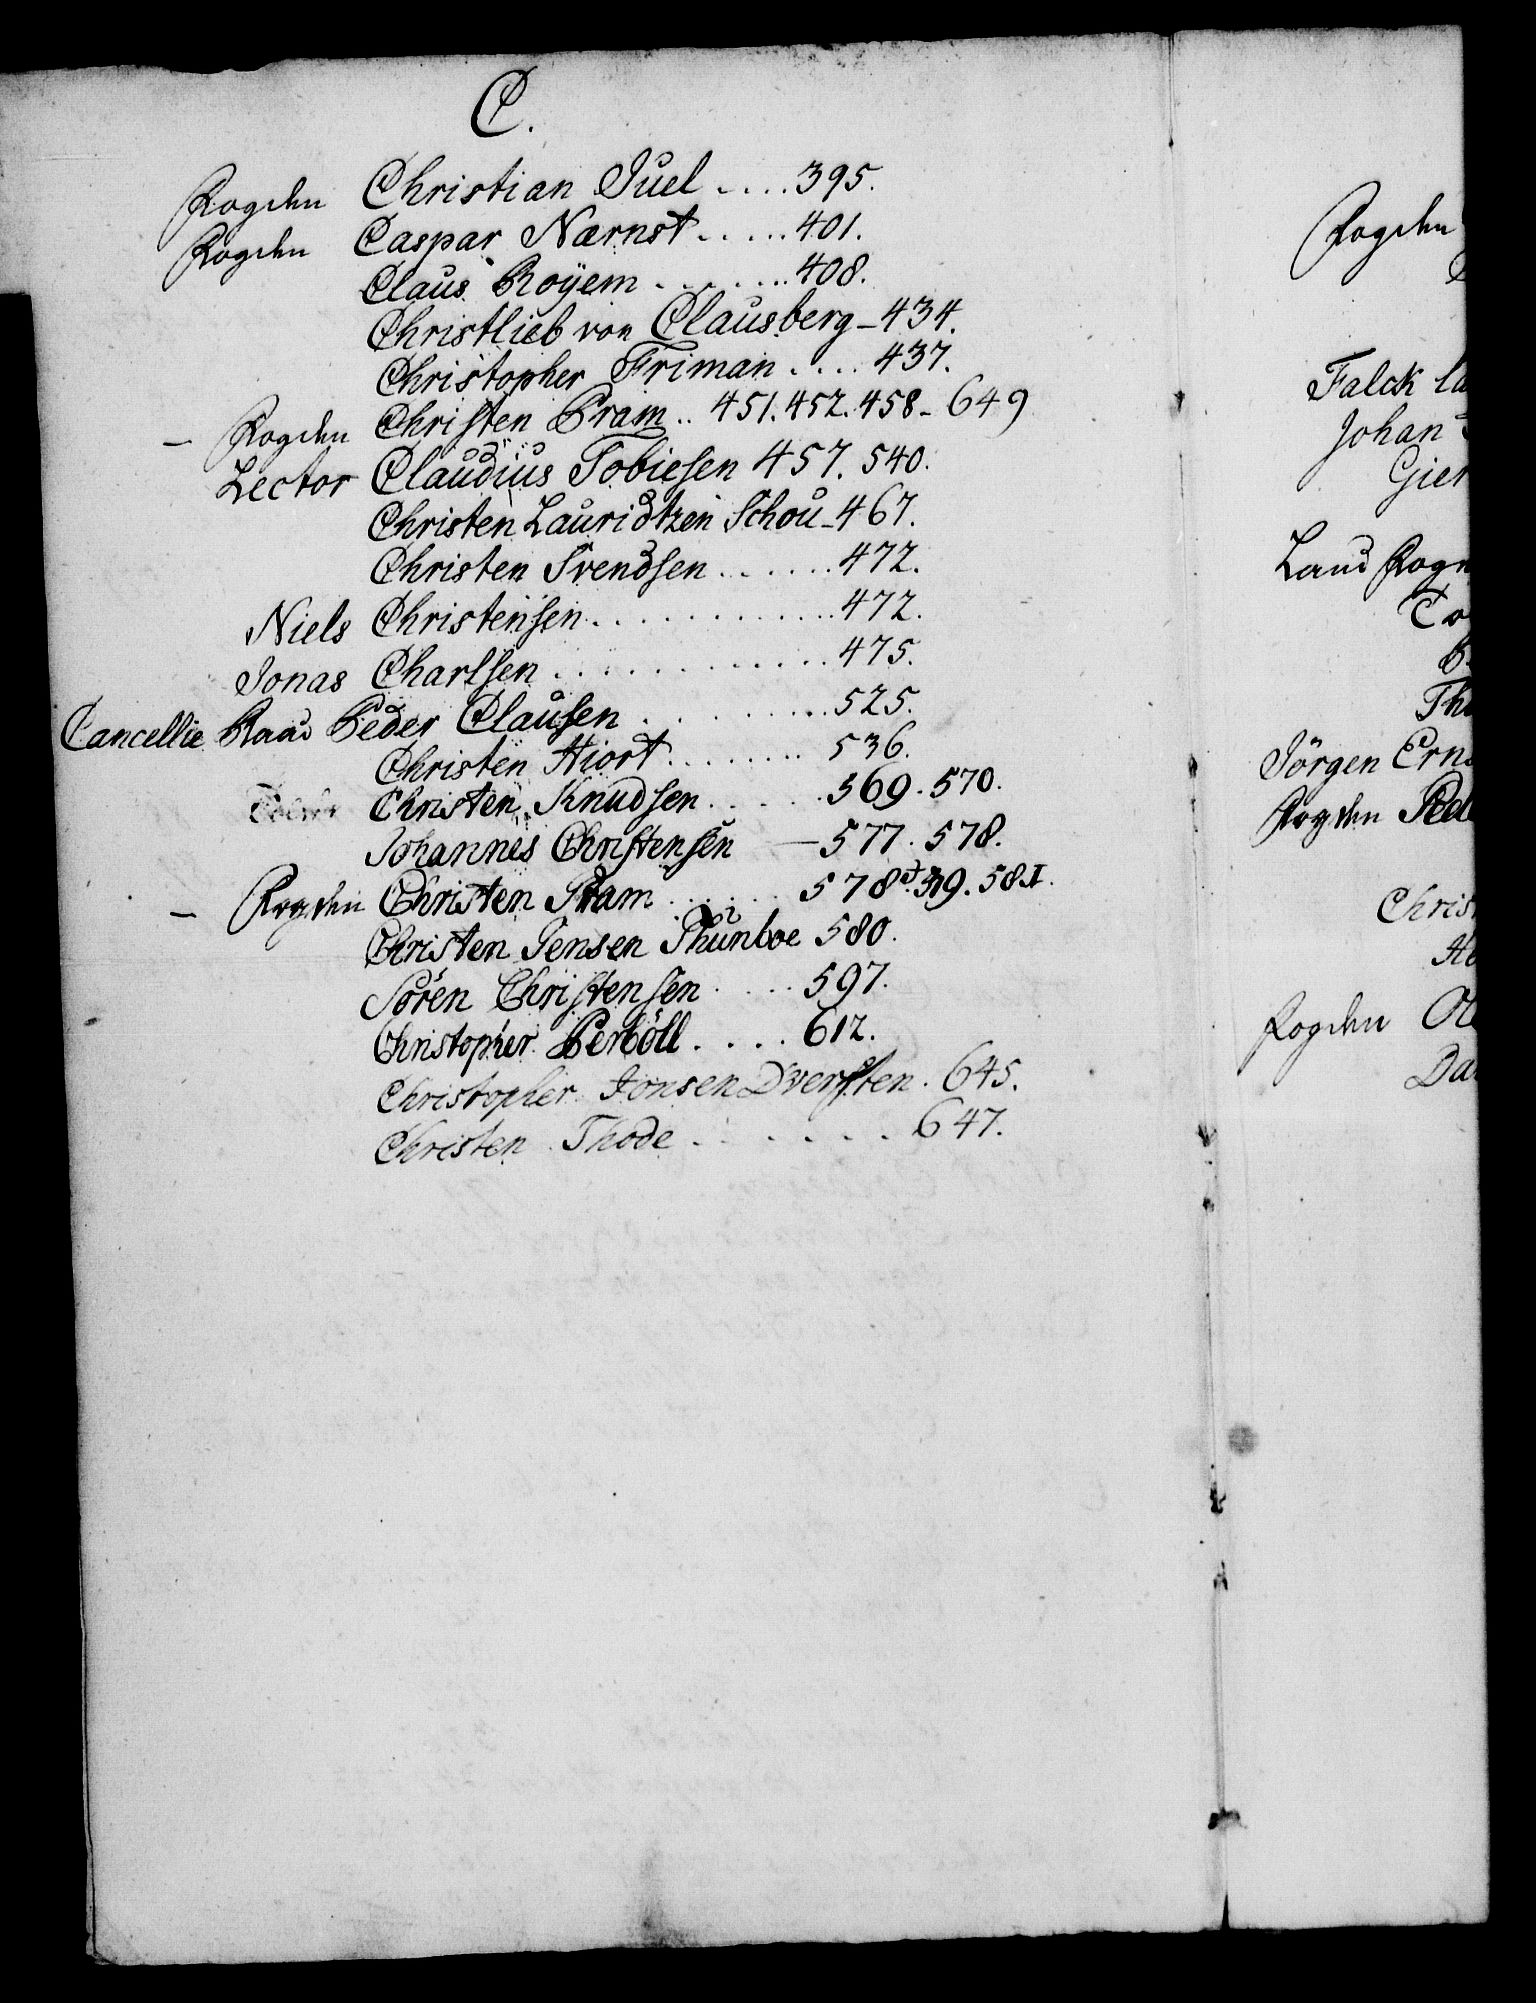 C.
Fogden Christian Juel .... 395.
Fogden Caspar Nærnst ..... 401.
Claus Royem ........ 408.
Christlieb von Clausberg - 434.
Christopher Friman .... 437.
- Fogden Christen Pram .. 451. 452. 458 - 649
Lector Claudius Tobiesen 457. 540.
Christen Lauridtzen Schou - 467.
Christen Svendsen ...... 472.
Niels Christensen ............ 472.
Jonas Charlsen ............. 475.
Cancellie Raad Peder Clausen ......... 525.
Christen Hiort ........ 536.
Christen Knudsen ...... 569. 570.
Johannes Christensen - 577. 578.
- Fogden Christen Pram ...... 578. 581.
Christen Jensen Thunboe 580.
Sören Christensen ..... 597.
Christopher Perböll .... 612.
Christopher Jonsen Dversten. 645.
Christen Thode ....... 647.
Fogden
Falck
Johan
Land Fog
Jörgen Ern
Fogden Ped
Chris
Fogden Ol